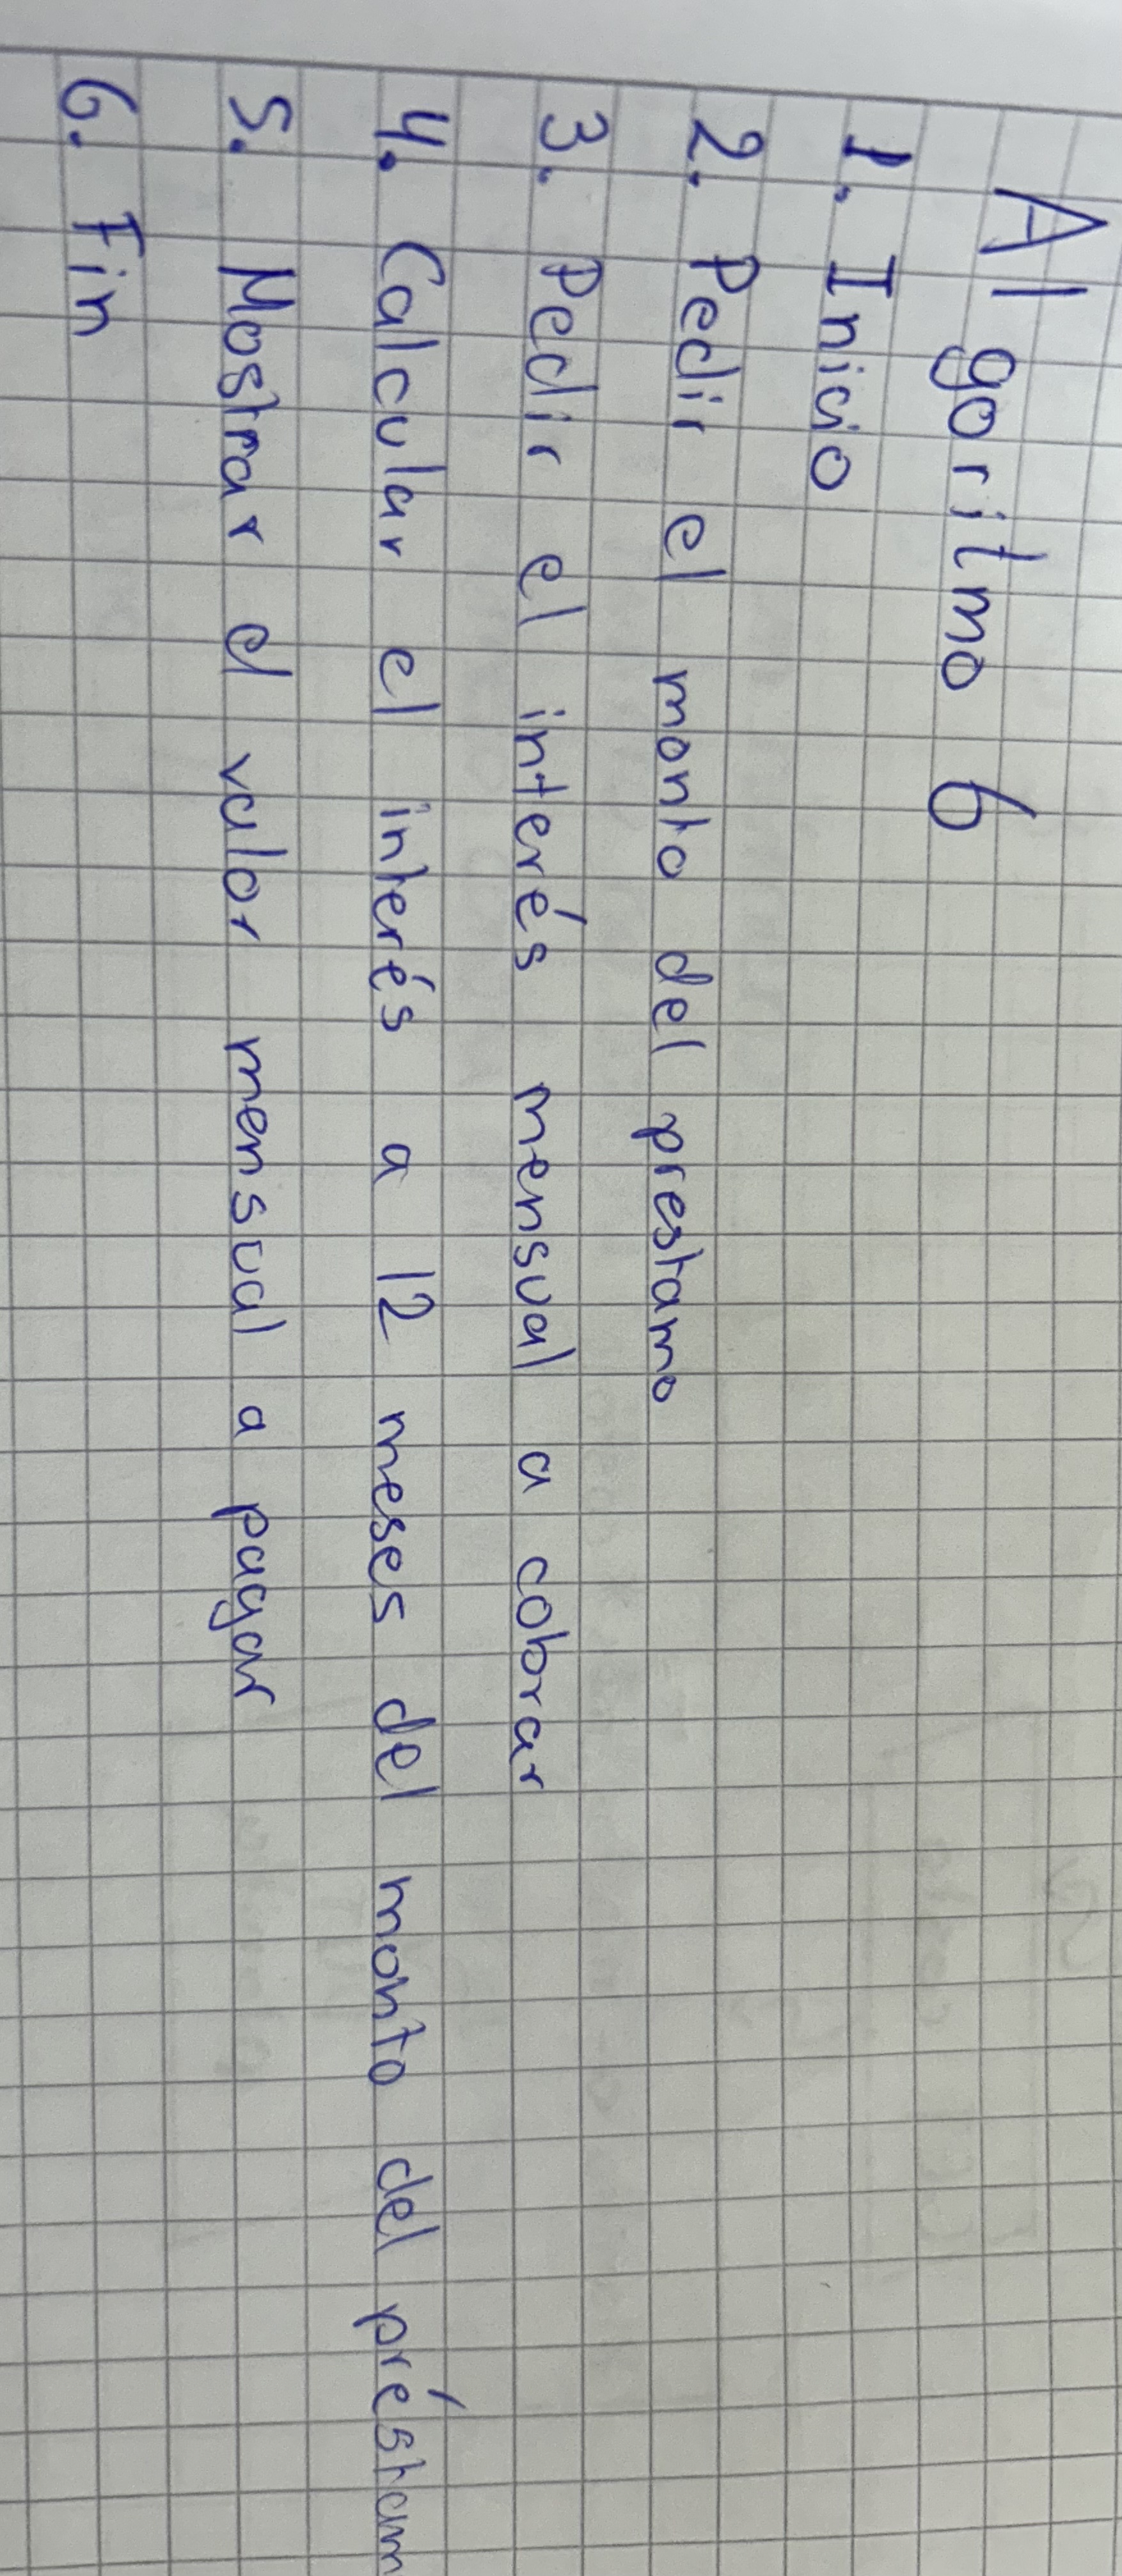 Algoritmo 6
1. Inicio
2. Pedir el monto del prestamo
3. Pedir el interés mensual a cobrar
4. Calcular el interés a 12 meses del monto del préstam
5. Mostrar el valor mensual a pagar
6. Fin